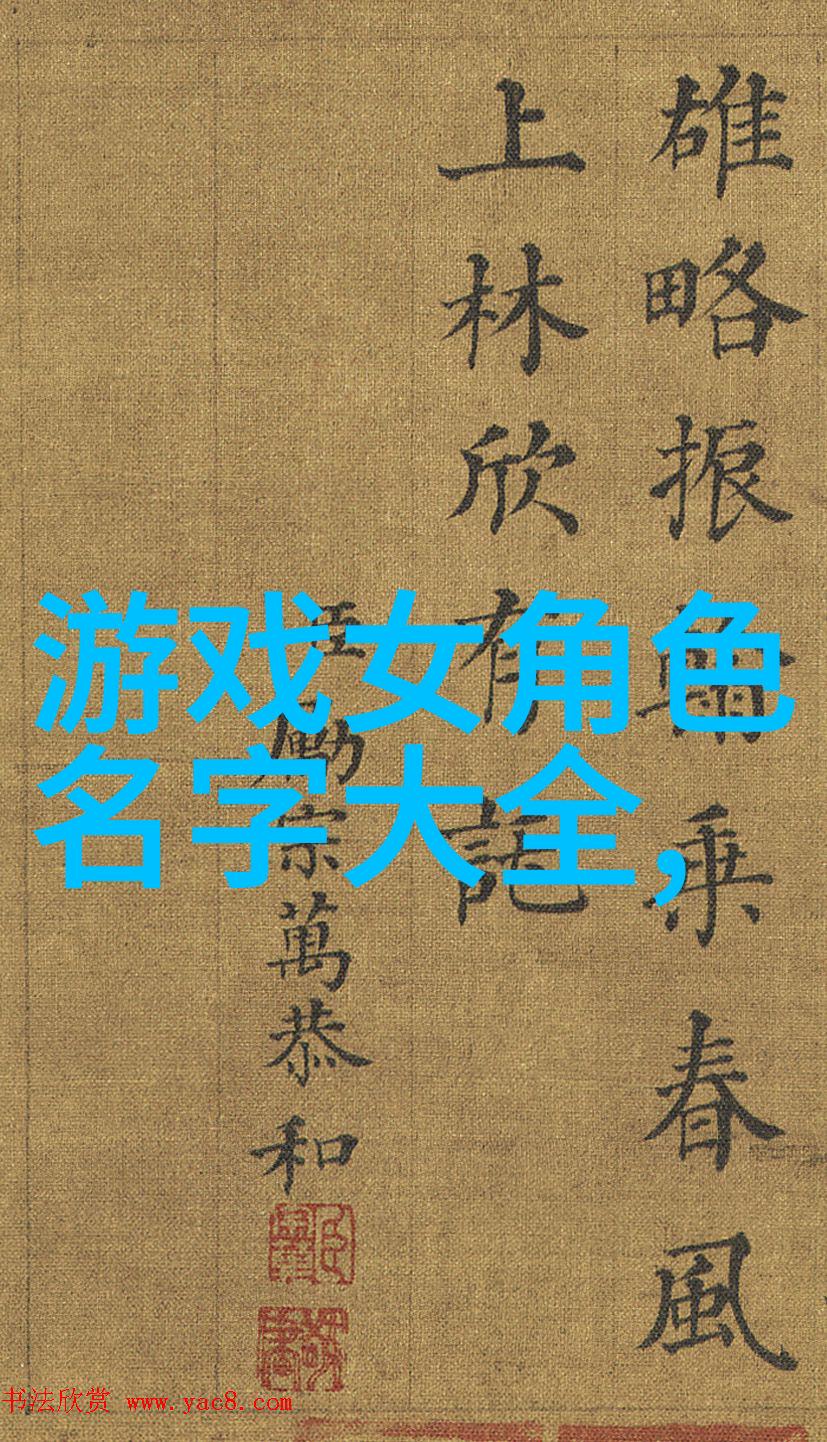 雄略振乘春風
上林欣有託
臣勵宗萬恭和
游戏女角色
名字大全,
书法欣赏 www.yac8.com